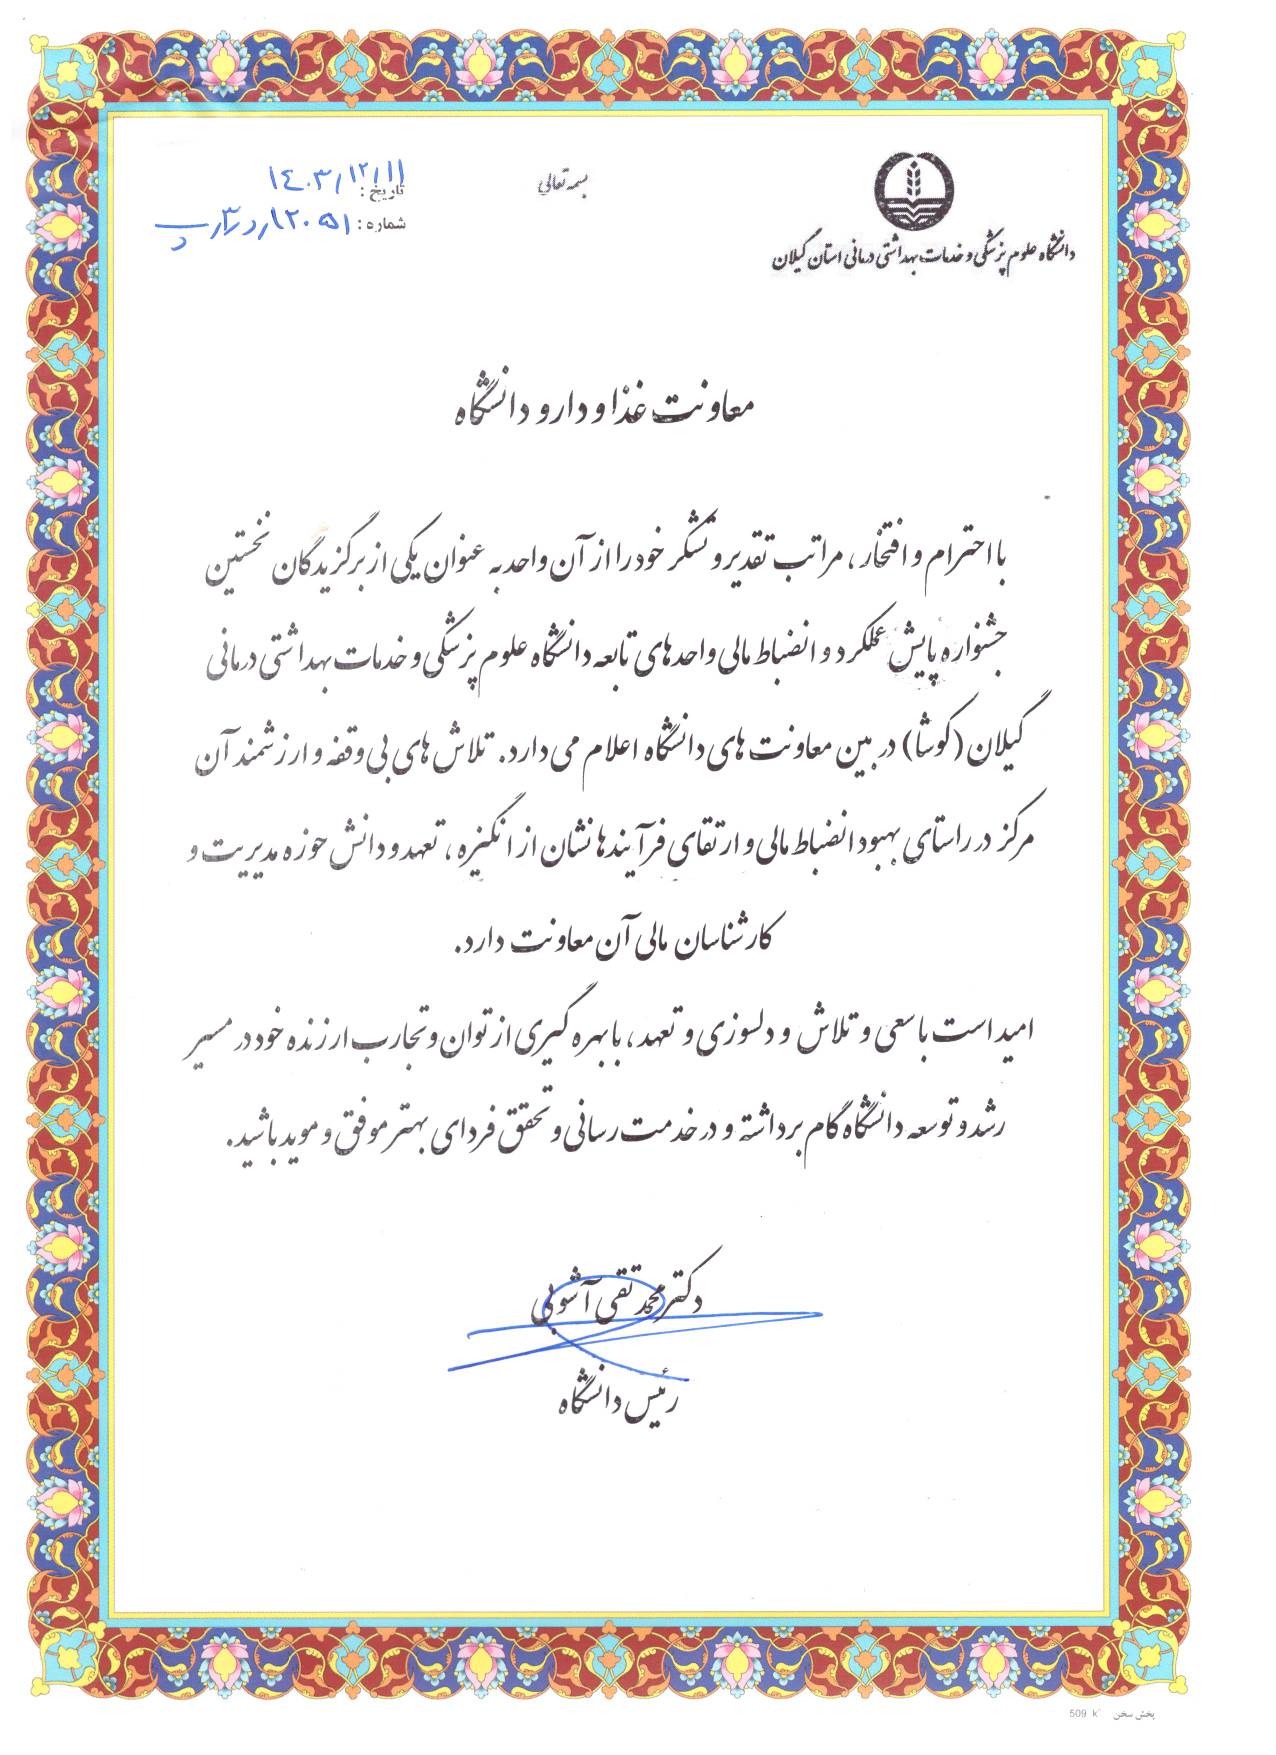 بسمه تعالی
تاریخ : ۱۴۰۳/۱۲/۱۱
شماره :
دانشگاه علوم پزشکی و خدمات بهداشتی درمانی استان گیلان
معاونت غذا و دارو دانشگاه
با احترام و افتخار ، مراتب تقدیر و تشکر خود را از آن واحد به عنوان یکی از برگزیدگان نخستین
جشنواره پایش عملکرد و انضباط مالی واحدهای تابعه دانشگاه علوم پزشکی و خدمات بهداشتی درمانی
گیلان (کوشا) در بین معاونت های دانشگاه اعلام می دارد. تلاش های بی وقفه و ارزشمند آن
مرکز در راستای بهبود انضباط مالی و ارتقای فرآیندها نشان از انگیزه ، تعهد و دانش حوزه مدیریت و
کارشناسان مالی آن معاونت دارد.
امید است با سعی و تلاش و دلسوزی و تعهد ، با بهره گیری از توان و تجارب ارزنده خود در مسیر
رشد و توسعه دانشگاه گام برداشته و در خدمت رسانی و تحقق فردای بهتر موفق و موید باشید.
دکتر محمد تقی آشوبی
رئیس دانشگاه
پخش سخن 509 k